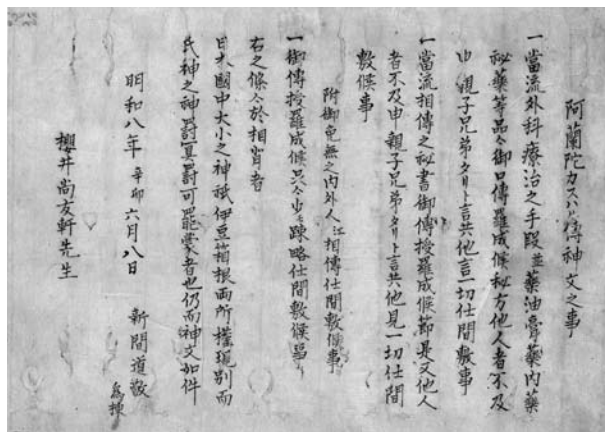 阿蘭陀カスハル傳神文之事
一當流外科療治之手段並藥油膏藥内藥
秘藥等品々御口傳羅成候秘方他人者不及
申親子兄弟タリト言共他言一切仕間敷事
一當流相傳之秘書御傳授羅成候節是又他人
者不及申親子兄弟タリト言共他見一切仕間
敷候事
附御免無之内外人江相傳仕間敷候事
一御傳授羅成候只今少モ踈略仕間敷候事
右之條々於相背者
日本國中大小之神祇伊豆箱根両所權現別而
氏神之神罸冥罸可罷蒙者也仍而神文如件
明和八年辛卯六月八日
新開道敬
為棟
櫻井尚友軒先生